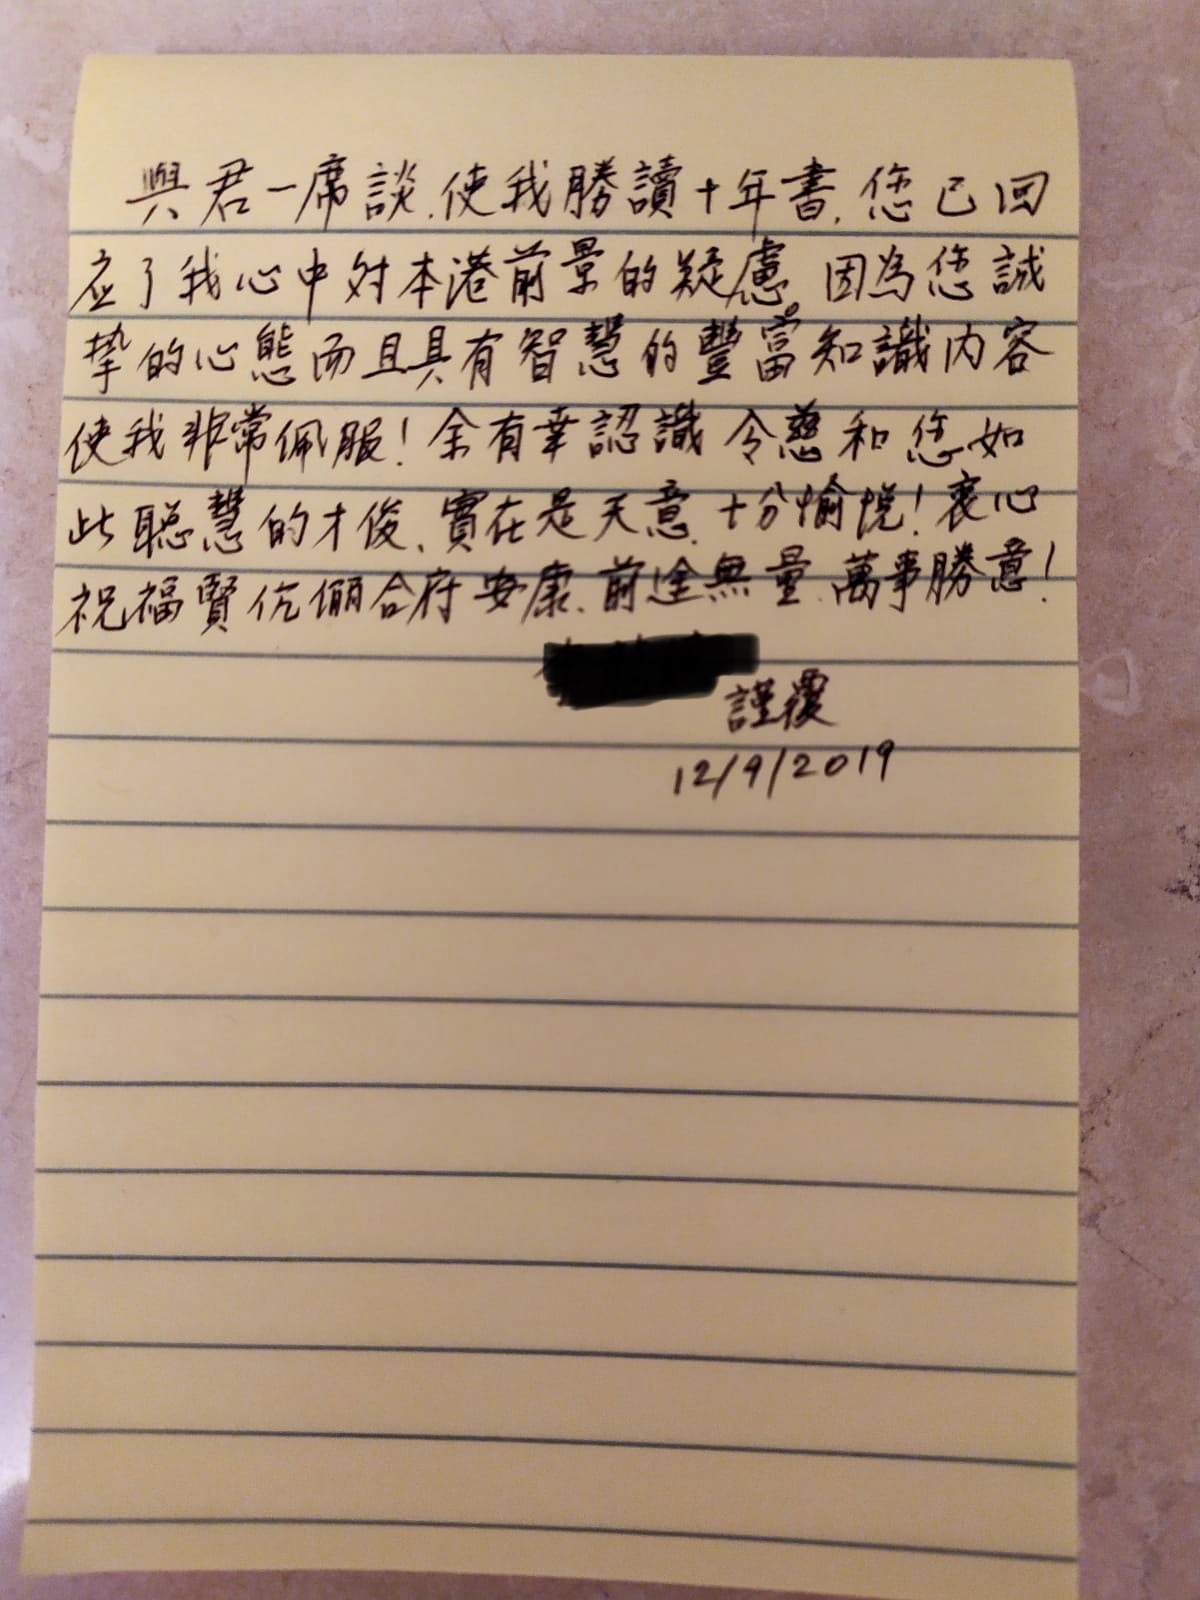 與君一席談.使我勝讀十年書.您已回
应了我心中对本港前景的疑慮。因為您誠
挚的心態而且具有智慧的豐富知識内容
使我非常佩服!余有幸認識令慈和您如
此聪慧的才俊、實在是天意.十分愉悦!衷心
祝福賢伉儷合府安康.前途無量.萬事勝意!
謹覆
12/9/2019